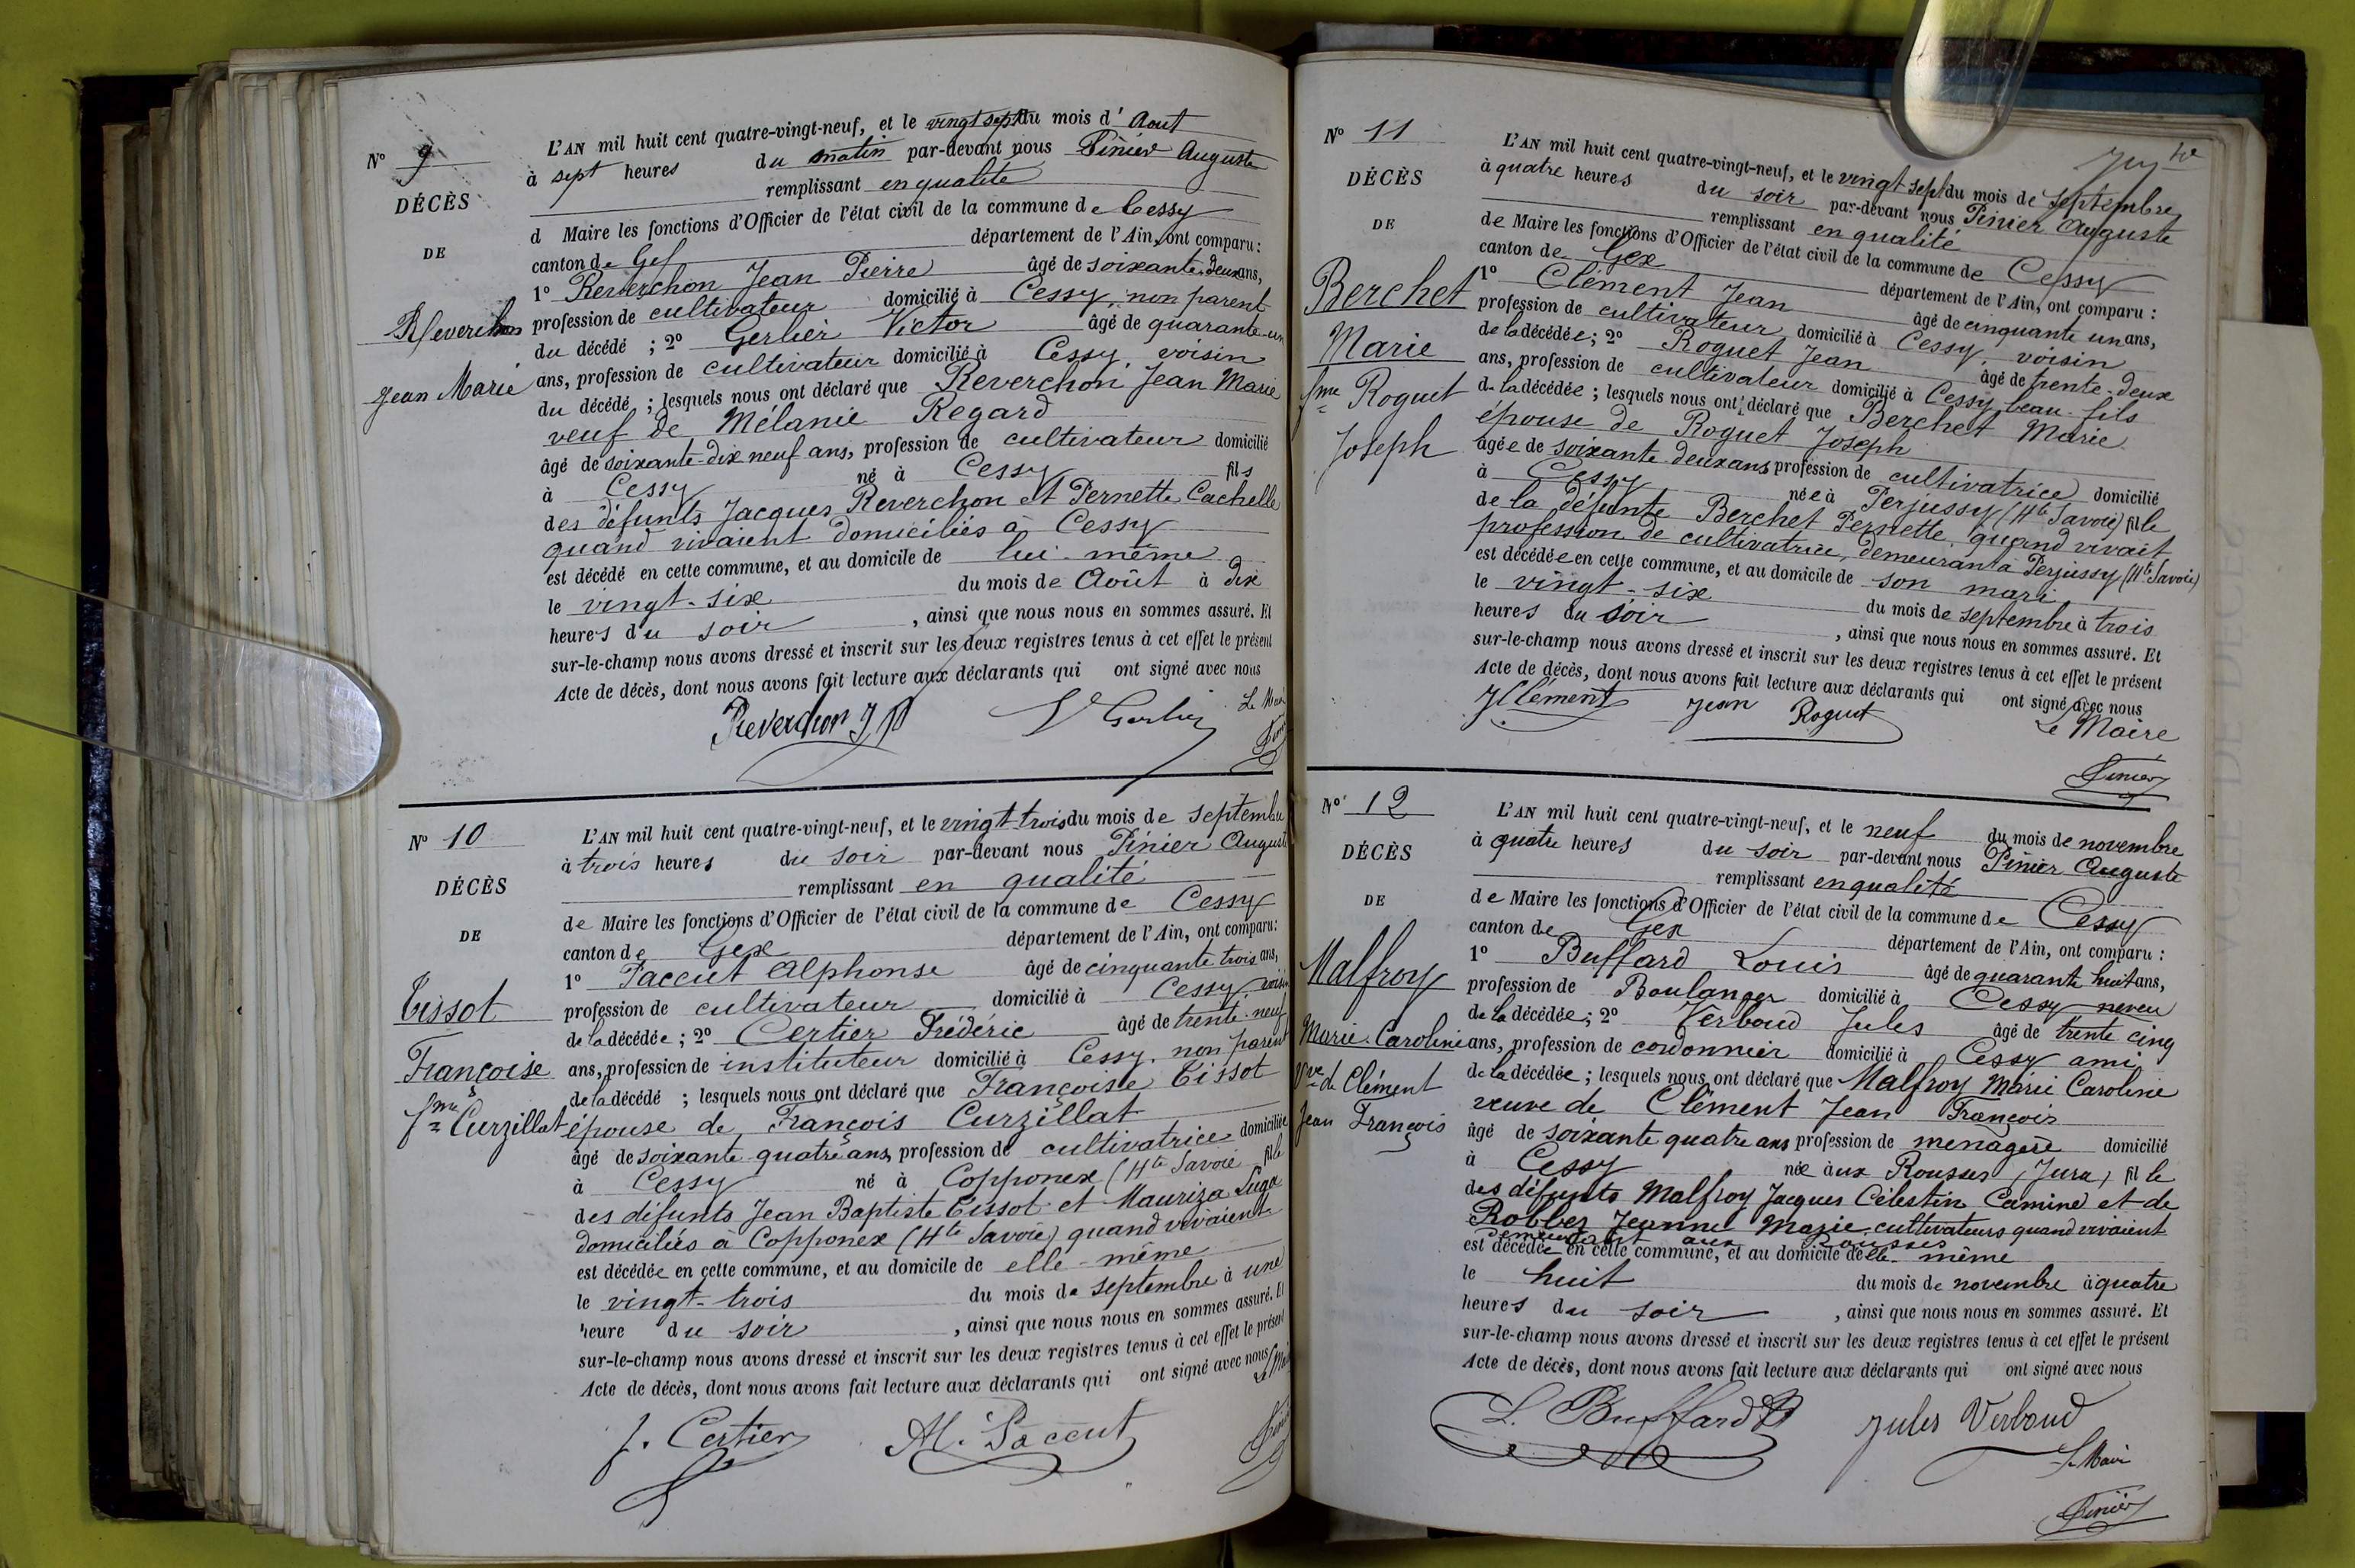 N° 9
DÉCÈS
DE
Reverchon
Jean Marie
L'AN mil huit cent quatre-vingt-neuf, et le vingt sept du mois d' Aout
à sept heures du matin par-devant nous Pinier Auguste
remplissant en qualité
d Maire les fonctions d'Officier de l'état civil de la commune de Cessy
canton de Gex département de l'Ain, ont comparu :
1° Reverchon Jean Pierre âgé de soixante deux ans,
profession de cultivateur domicilié à Cessy, non parent
du décédé ; 2° Gerlier Victor âgé de quarante-un
ans, profession de cultivateur domicilié à Cessy, voisin
du décédé ; lesquels nous ont déclaré que Reverchon Jean Marie
veuf de Mélanie Regard
âgé de soixante-dix neuf ans, profession de cultivateur domicilié
à Cessy né à Cessy fils
des défunts Jacques Reverchon et Pernette Cachelle
quand vivaient domiciliés à Cessy
est décédé en cette commune, et au domicile de lui-même
le vingt-six du mois de Août à dix
heures du soir , ainsi que nous nous en sommes assuré. Et
sur-le-champ nous avons dressé et inscrit sur les deux registres tenus à cet effet le présent
Acte de décès, dont nous avons fait lecture aux déclarants qui ont signé avec nous
Reverchon J P V Gerlier Le Maire
Pinier
N° 10
DÉCÈS
DE
Tissot
Françoise
fme Curzillat
L'AN mil huit cent quatre-vingt-neuf, et le vingt-trois du mois de septembre
à trois heures du soir par-devant nous Pinier Auguste
remplissant en qualité
de Maire les fonctions d'Officier de l'état civil de la commune de Cessy
canton de Gex département de l'Ain, ont comparu :
1° Paccut Alphonse âgé de cinquante trois ans,
profession de cultivateur domicilié à Cessy, voisin
de la décédée ; 2° Certier Frédéric âgé de trente-neuf
ans, profession de instituteur domicilié à Cessy, non parent
de la décédé ; lesquels nous ont déclaré que Françoise Tissot
épouse de François Curzillat
âgé de soixante-quatre ans, profession de cultivatrice domiciliée
à Cessy né à Copponex (Hte Savoie fille
des défunts Jean Baptiste Tissot et Mauriza
domiciliés à Copponex (Hte Savoie) quand vivaient
est décédée en cette commune, et au domicile de elle-même
le vingt-trois du mois de septembre à une
heure du soir , ainsi que nous nous en sommes assuré. Et
sur-le-champ nous avons dressé et inscrit sur les deux registres tenus à cet effet le présent
Acte de décès, dont nous avons fait lecture aux déclarants qui ont signé avec nous
Le Maire
f. Certier Al. Paccut Pinier
N° 11
DÉCÈS
DE
Berchet
Marie
fme Roguet
Joseph
L'AN mil huit cent quatre-vingt-neuf, et le vingt sept du mois de septembre
à quatre heures du soir par-devant nous Pinier Auguste
remplissant en qualité
de Maire les fonctions d'Officier de l'état civil de la commune de Cessy
canton de Gex département de l'Ain, ont comparu :
1° Clément Jean âgé de cinquante un ans,
profession de cultivateur domicilié à Cessy, voisin
de la décédée ; 2° Roguet Jean âgé de trente-deux
ans, profession de cultivateur domicilié à Cessy, beau-fils
de la décédée ; lesquels nous ont déclaré que Berchet Marie
épouse de Roguet Joseph
âgée de soixante-deux ans profession de cultivatrice domicilié
à Cessy née à Perjussy (Hte Savoie) fille
de la défunte Berchet Pernette, quand vivait
profession de cultivatrice, demeurant à Perjussy (Hte Savoie)
est décédée en cette commune, et au domicile de son mari
le vingt-six du mois de septembre à trois
heures du soir , ainsi que nous nous en sommes assuré. Et
sur-le-champ nous avons dressé et inscrit sur les deux registres tenus à cet effet le présent
Acte de décès, dont nous avons fait lecture aux déclarants qui ont signé avec nous
J Clément Jean Roguet Le Maire
Pinier
N° 12
DÉCÈS
DE
Malfroy
Marie-Caroline
Vve de Clément
Jean François
L'AN mil huit cent quatre-vingt-neuf, et le neuf du mois de novembre
à quatre heures du soir par-devant nous Pinier Auguste
remplissant en qualité
de Maire les fonctions d'Officier de l'état civil de la commune de Cessy
canton de Gex département de l'Ain, ont comparu :
1° Buffard Louis âgé de quarante huit ans,
profession de Boulanger domicilié à Cessy neveu
de la décédée ; 2° Verboud Jules âgé de trente cinq
ans, profession de cordonnier domicilié à Cessy ami
de la décédée ; lesquels nous ont déclaré que Malfroy Marie Caroline
veuve de Clément Jean François
âgé de soixante quatre ans profession de menagère domicilié
à Cessy née aux Rousses (Jura) fille
des défunts Malfroy Jacques Célestin Camine et de
Robbez Jeanne Marie cultivateurs quand vivaient
demeurant aux Rousses
est décédée en cette commune, et au domicile de elle-même
le huit du mois de novembre à quatre
heures du soir , ainsi que nous nous en sommes assuré. Et
sur-le-champ nous avons dressé et inscrit sur les deux registres tenus à cet effet le présent
Acte de décès, dont nous avons fait lecture aux déclarants qui ont signé avec nous
L. Buffard Jules Verboud
Le Maire
Pinier